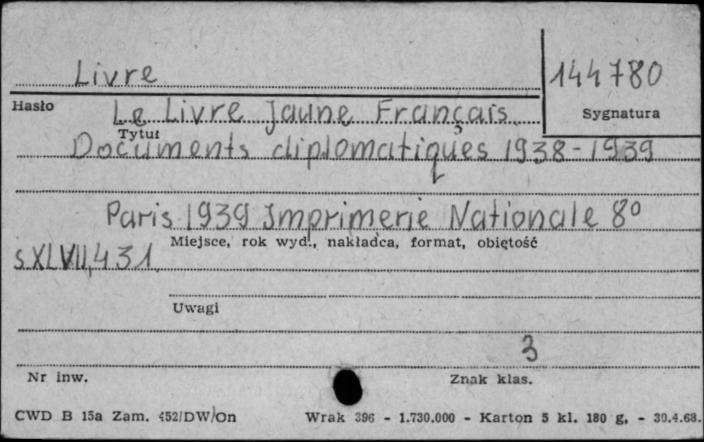 Livre
144780
Hasło
Sygnatura
Le Livre Jaune Français
Tytuł
Documents diplomatiques 1938-1939
Paris 1939 Imprimerie Nationale 8°
Miejsce, rok wyd., nakładca, format, objętość
s. XLVII, 431
Uwagi
3
Nr inw.
Znak klas.
CWD B 15a Zam. 452/DW/On Wrak 396 - 1.730.000 - Karton 5 kl. 180 g. - 30.4.68.